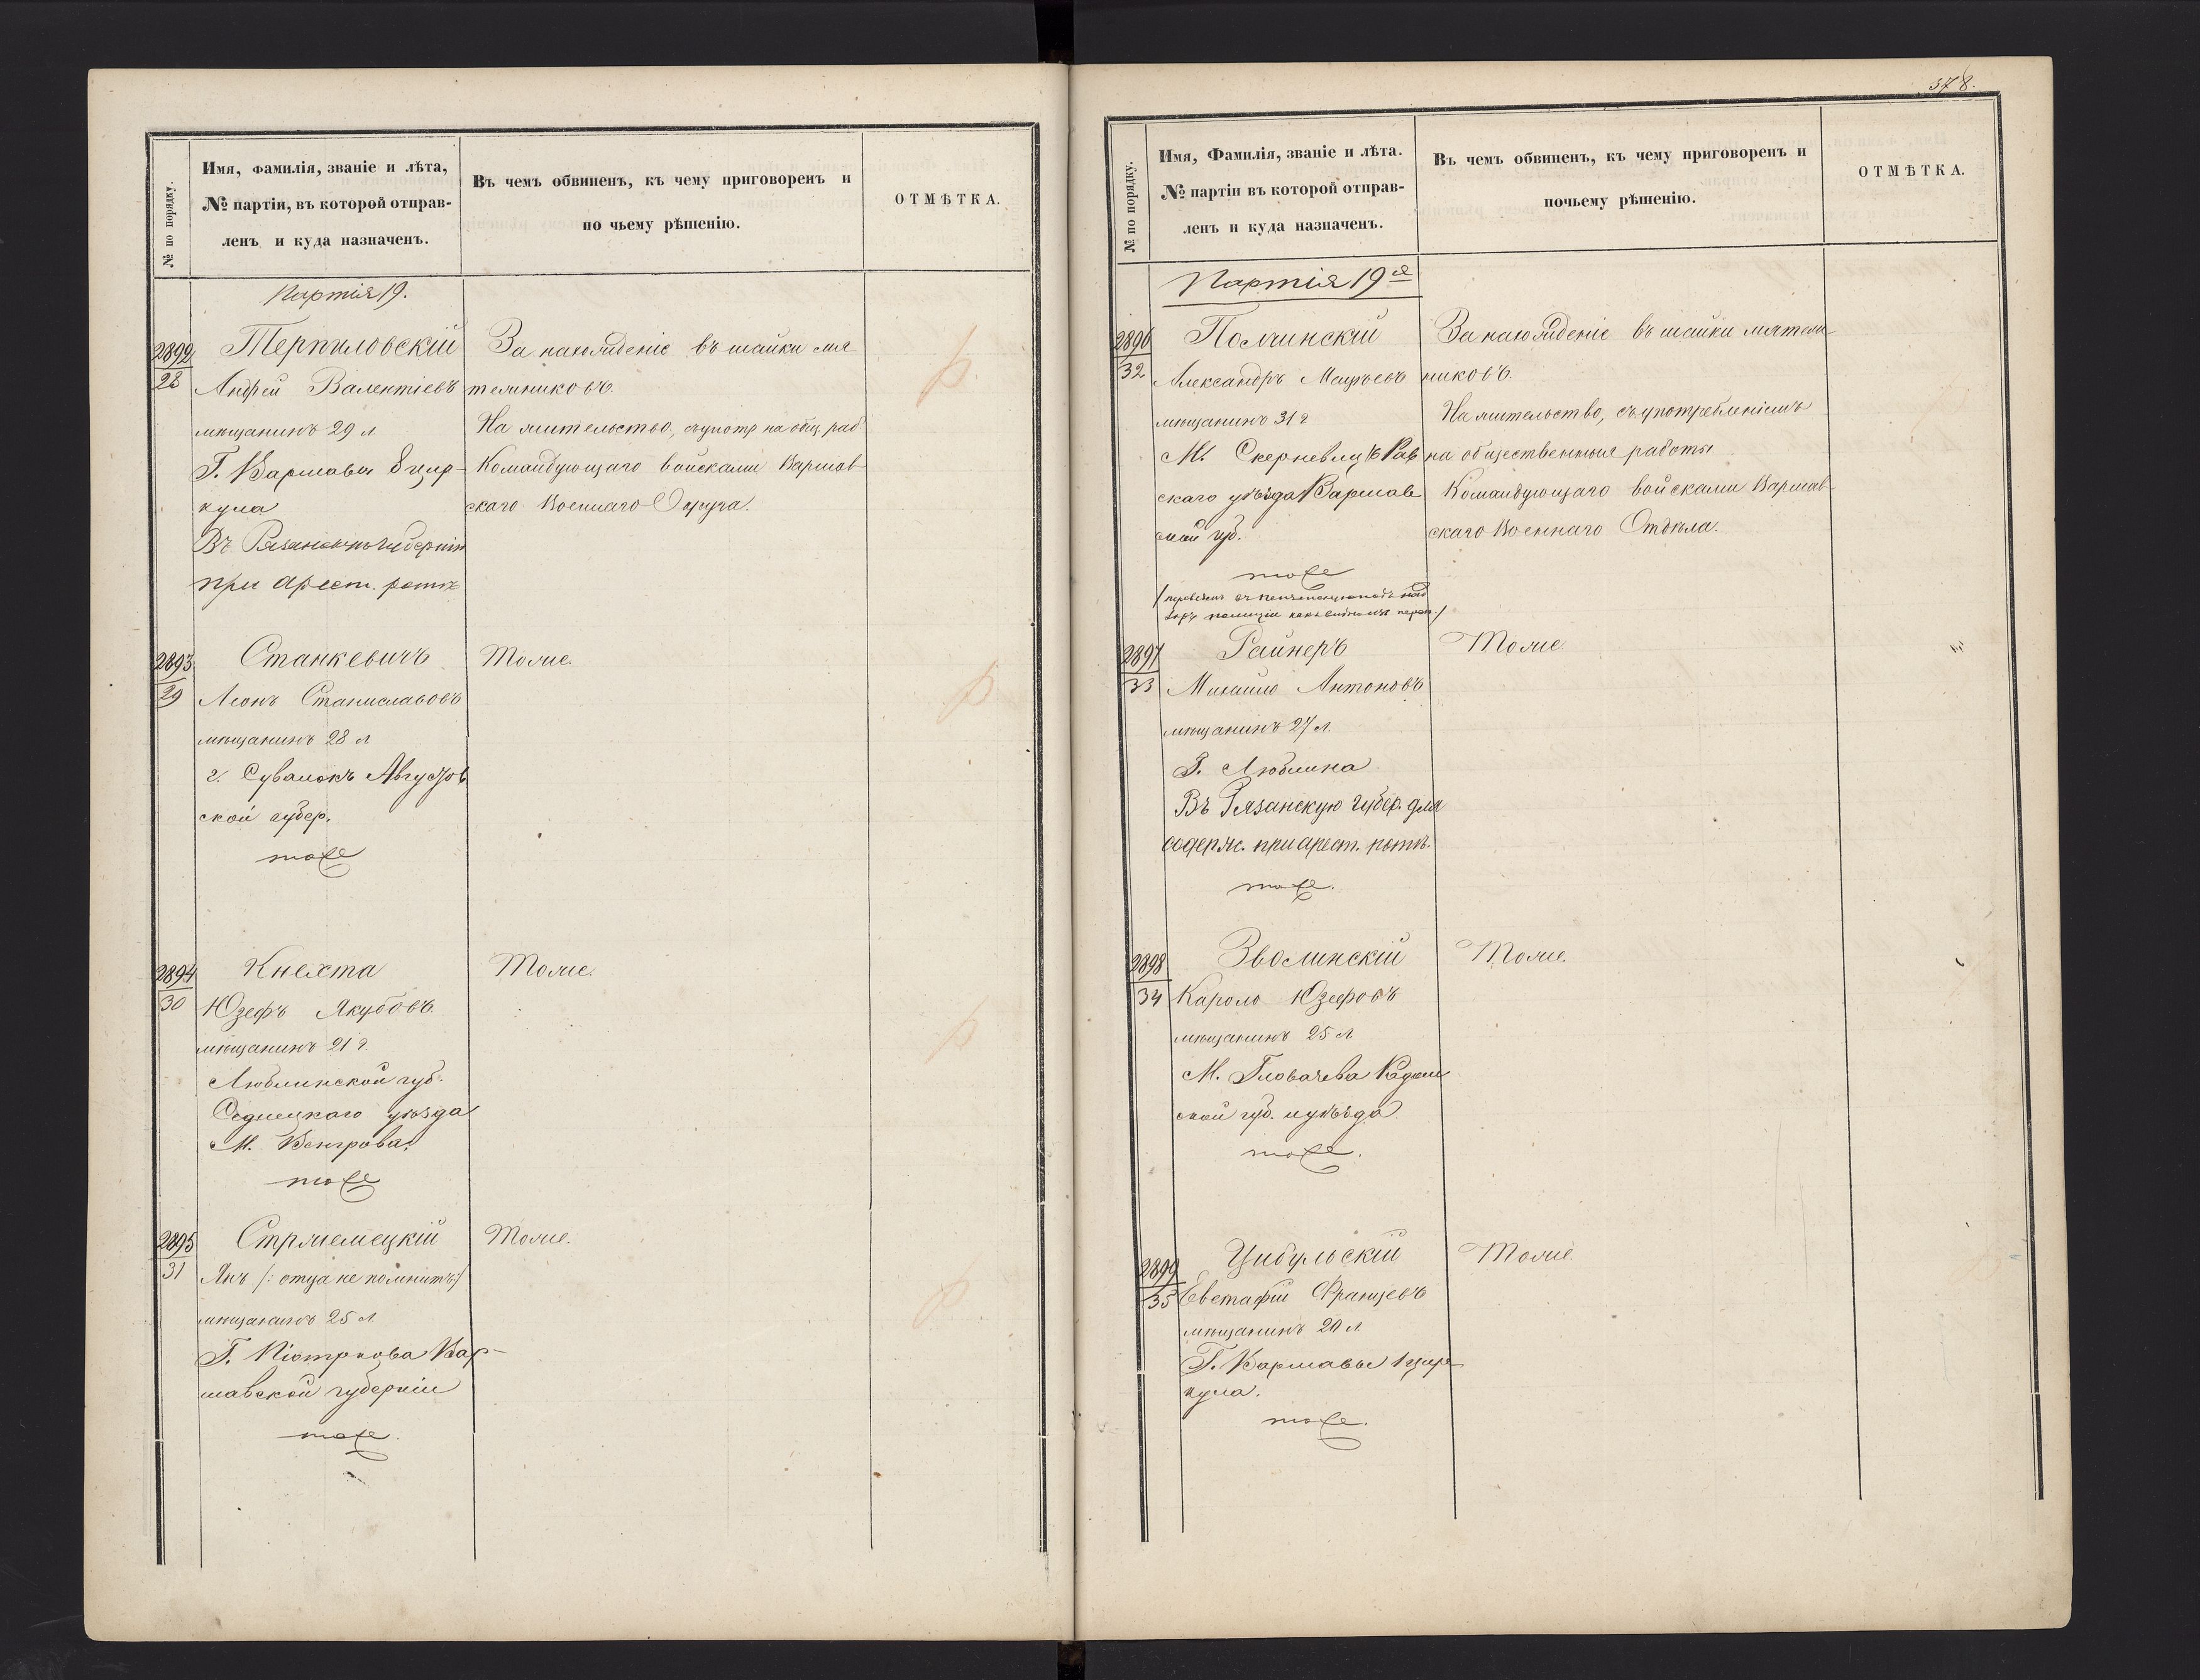 № по порядку.
Имя, фамилія, званіе и лѣта,
№ партіи, въ которой отправ-
ленъ и куда назначенъ.
Въ чемъ обвиненъ, къ чему приговоренъ и
по чьему рѣшенію.
ОТМѢТКА.
Партія 19.
2892
28
Терпиловскій
Андрей Валентіевъ
мѣщанинъ 29 л
Г. Варшавы 8 цир-
кула
Въ Рязанск. губерніи
при арест. ротѣ
За нахожденіе въ шайки мя
тежниковъ.
На жительство, съ употр на общ. раб
Командующаго войсками Варшав
скаго Военнаго Округа.
2893
29
Станкевичъ
Леонъ Станиславовъ
мѣщанинъ 28 л
г. Сувалокъ Августов
ской губер.
тоже
Тоже.
2894
30
Кнехта
Юзефъ Якубовъ
мѣщанинъ 21 г.
Люблинской губ.
Седлецкаго уѣзда
М. Венгрова.
тоже
Тоже.
2895
31
Стржемецкій
Янъ /: отца не помнитъ :/
мѣщанинъ 25 л
Г. Піотркова Вар-
шавской губерніи
тоже.
Тоже.
378.
№ по порядку.
Имя, Фамилія, званіе и лѣта.
№ партіи въ которой отправ-
ленъ и куда назначенъ.
Въ чемъ обвиненъ, къ чему приговоренъ и
почьему рѣшенію.
ОТМѢТКА.
Партія 19я
2896
32
Полчинскій
Александръ
мѣщанинъ 31 г
М. Скерневицъ Рав
скаго уѣзда Варшав
ской губ.
тоже
За нахожденіе въ шайки мятеж
никовъ.
На жительство, съ употребленіемъ
на общественныя работы
Командующаго войсками Варшав
скаго Военнаго Отдѣла.
2897
33
Райнеръ
Михаило Антоновъ
мѣщанинъ 27 л.
Г. Люблина
Въ Рязанскую губер. для
содерж. при арест. ротѣ.
тоже.
Тоже.
2898
34
Зволинскій
Кароль Юзефовъ
мѣщанинъ 25 л
М. Гловачева Радом
ской губ. и уѣзда.
тоже.
Тоже.
2899
35
Цибульскій
Евстафій Францевъ
мѣщанинъ 20 л
Г. Варшавы 1 цир-
кула.
тоже.
Тоже.